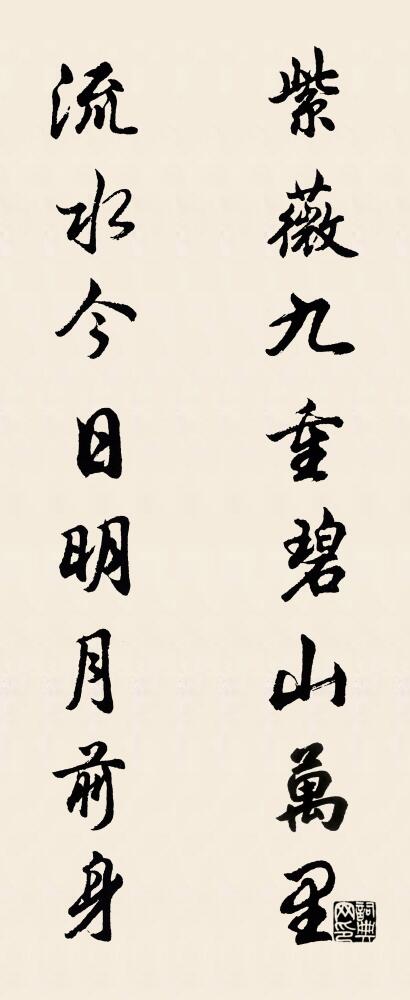 紫薇九重碧山萬里
流水今日明月前身
詞典網印